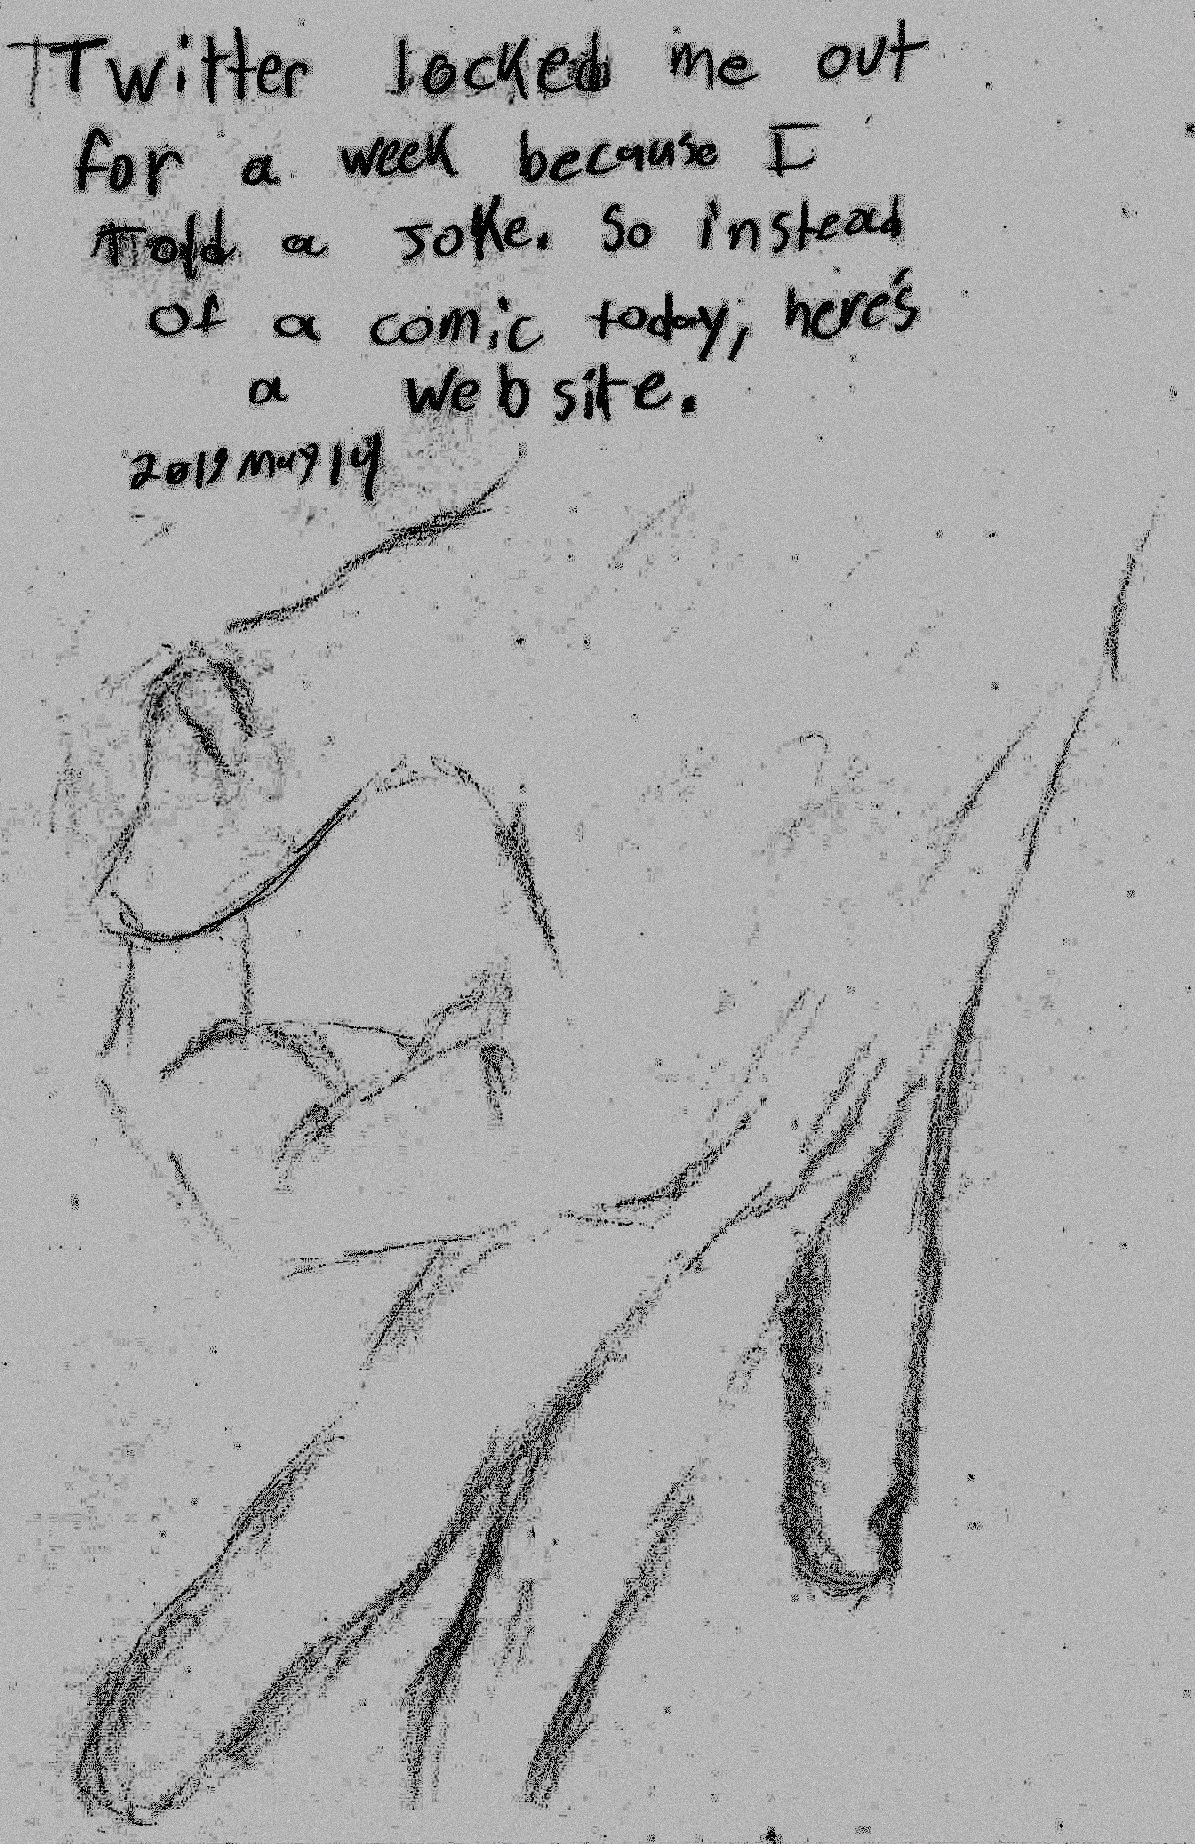 Twitter locked me out
for a week because I
Told a joke. So instead
of a comic today, here's
a website.
2019 May 14